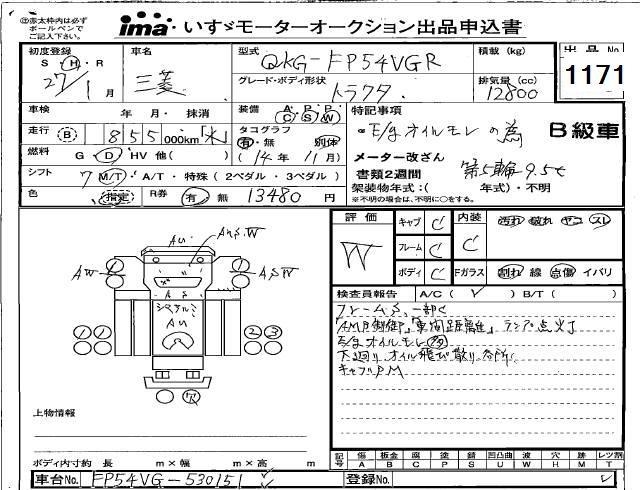 ㊟太枠内は必ずボールペンでご記入下さい。
ima いすゞモーターオークション出品申込書
初度登録 S H・R 27/1月
車名 三菱
型式 QKG-FP54VGR
グレード・ボディ形状 トラクタ
積載 (kg)
排気量 (cc) 12800
出品No. 1171
車検 年 月・抹消
装備 A/C P/S P/W
走行 B 855 000km
タコグラフ 有・無 別体 (14年11月)
燃料 G D HV 他( )
シフト 7 M/T A/T・特殊 (2ペダル・3ペダル)
色 指定 R券 有 無 13480 円
特記事項
E/gオイルモレの為 B級車
メーター改ざん
書類2週間 第5輪9.5t
架装物年式:( 年式)・不明
※不明の場合は、不明に○をする。
評価 W
キャブ C 内装 C 汚れ 破れ ヤコ スレ
フレーム C
ボディ C Fガラス 割れ 線 点傷 イバリ
検査員報告 A/C ( ) B/T ( )
フレームS、一部C
「AMP制御」「車間距離」ランプ点灯
E/gオイルモレ 多
下廻り オイル飛び散り
キャブPM
AU
AUSW
AW
ASW
AS
AU
1
1
1
1
2
3
上物情報
ボディ内寸約 長 m×幅 m×高 m
記号 傷 A 板金 B 腐 C 塗 P 錆 S 凹凸曲 U 波 W 穴 H 跡 M レツ割 T
車台No. FP54VG-530151
登録No.